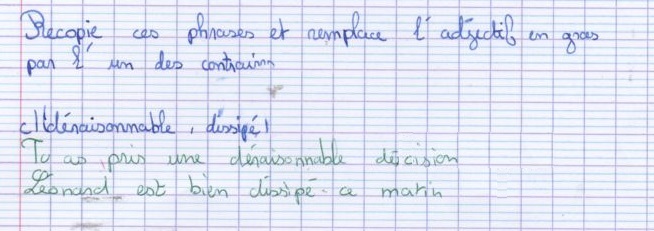 Recopie ces phrases et remplace l'adjectif en gras
par l'un des contrairn
c) (déraisonnable, dissipé)
Tu as pris une déraisonnable décision
Léonard est bien dissipé ce matin